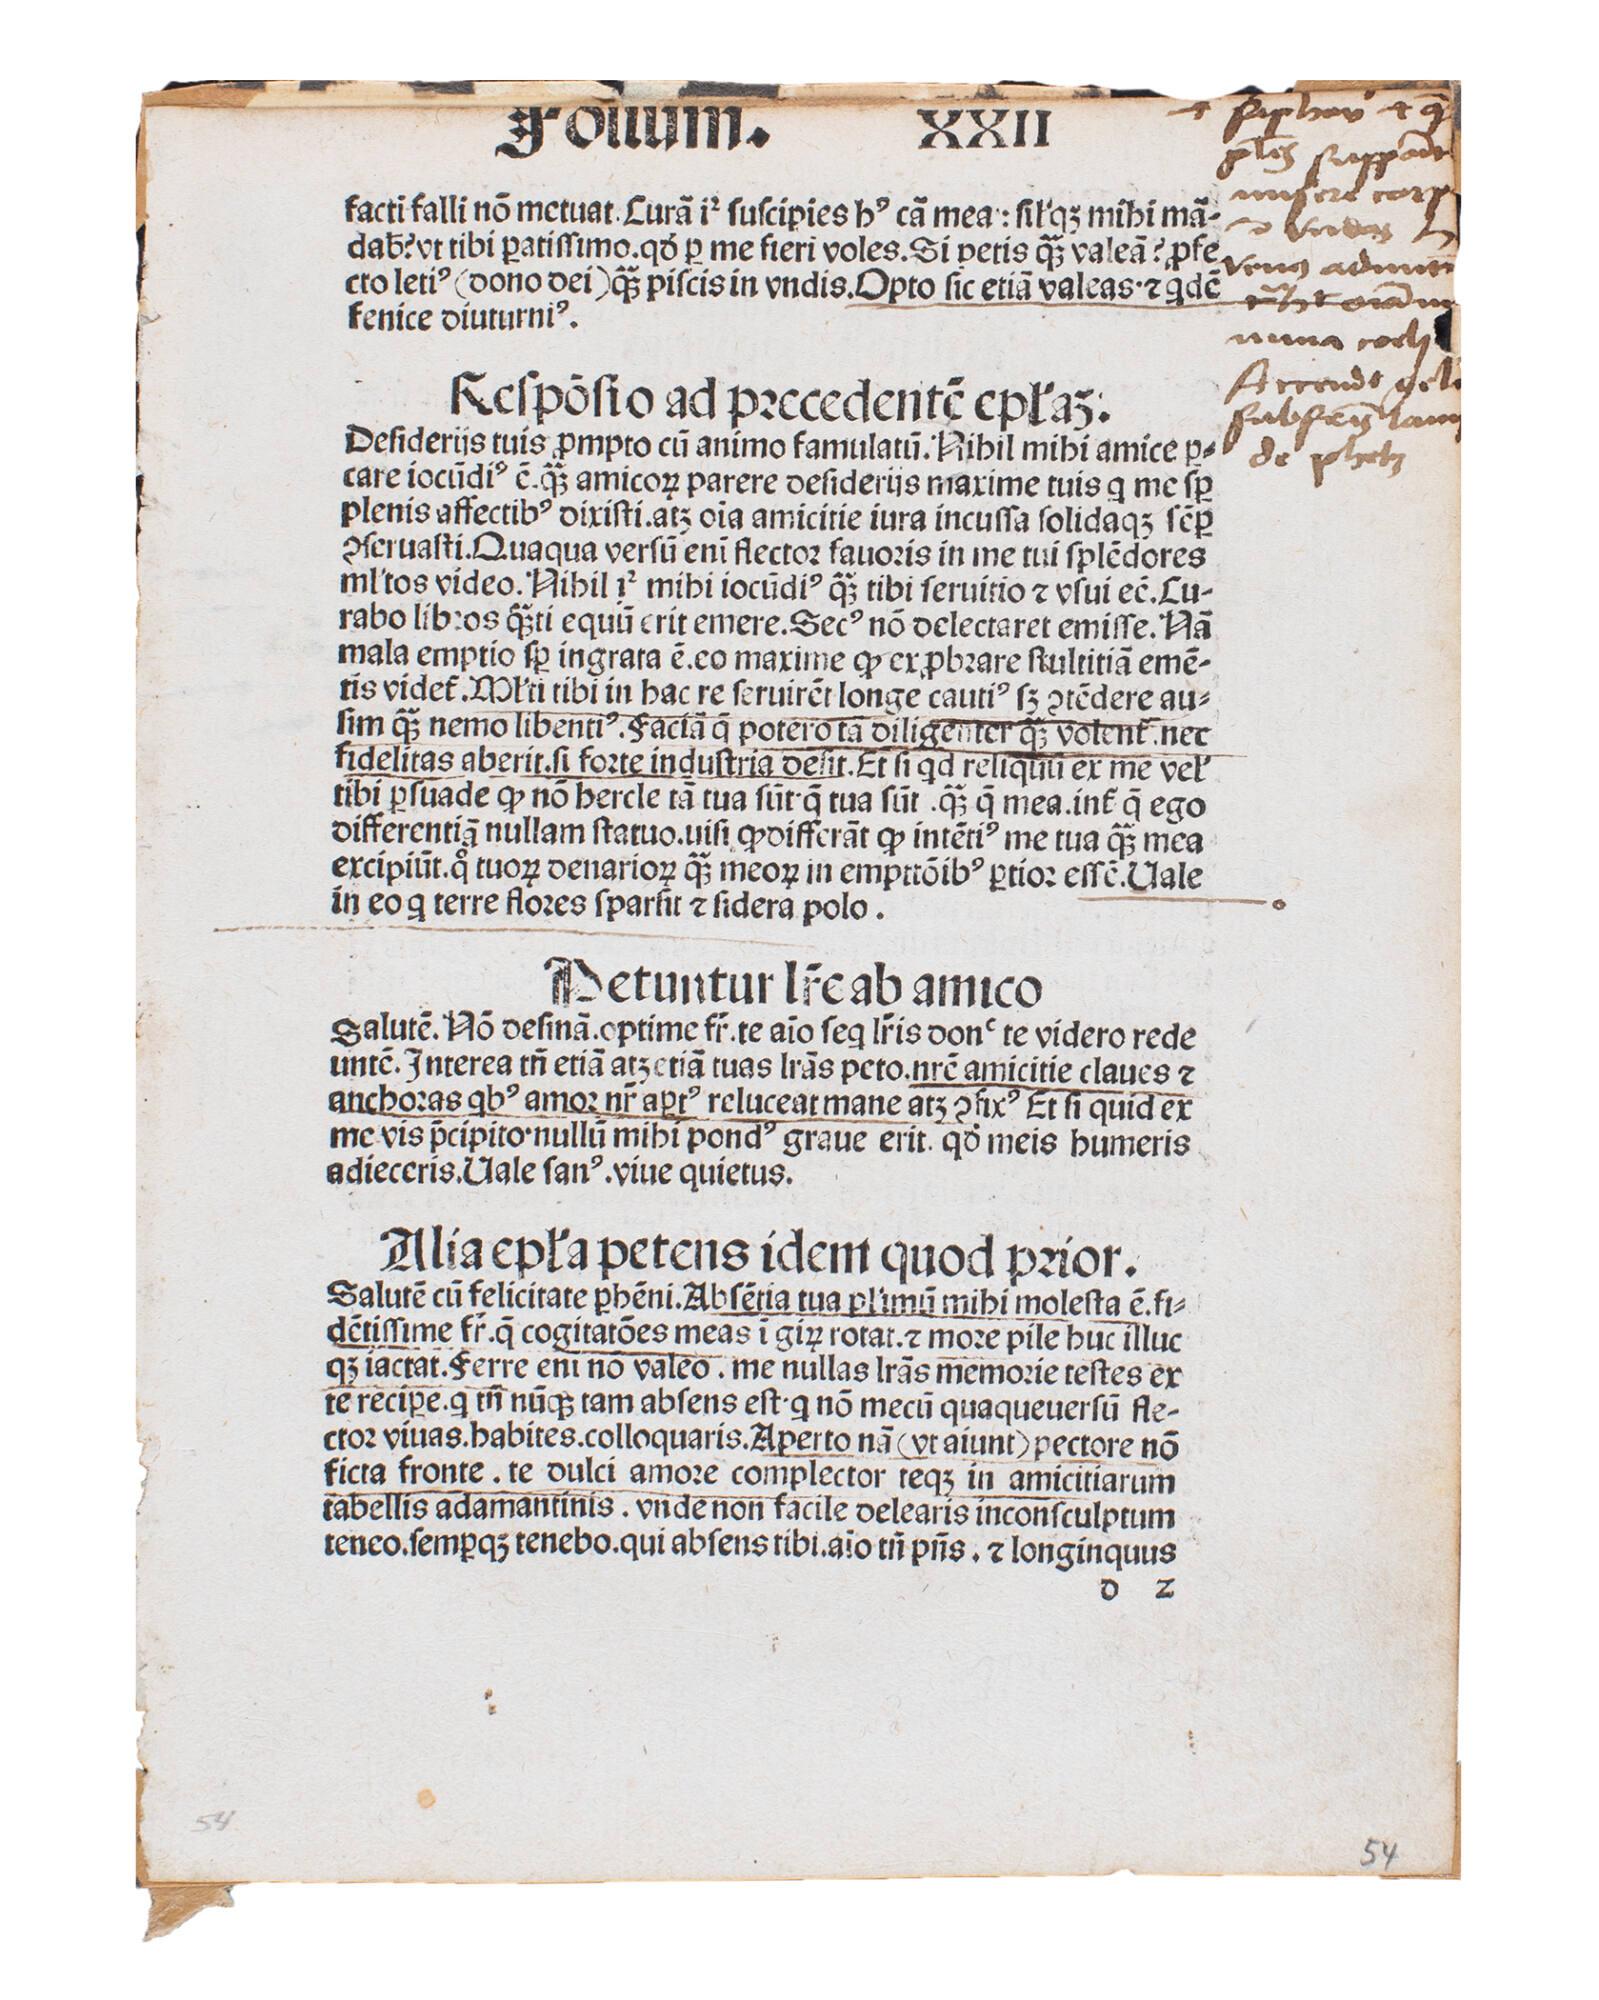 Folium. XXII
facti falli nō metuat. Curā iꝛ suscipies hꝰ cā mea: sił'qꝫ mihi mā-
dab̄? vt tibi ꝑatissimo. qđ ꝑ me fieri voles. Si petis qꝫ̄ valeā? ꝓfe
cto letiꝰ (dono dei) qꝫ̄ piscis in vndis. Opto sic etiā valeas. ⁊ qdē
fenice diuturniꝰ.
Respōsio ad precedentē epl'aꝫ:
Desiderijs tuis ꝓmpto cū animo famulatū. Nihil mihi amice p̄-
care iocūdiꝰ ē. qꝫ̄ amicoꝝ parere desiderijs maxime tuis q me sꝑ
plenis affectibꝰ dixisti. atꝫ oīa amicitie iura incussa solidaqꝫ sēꝑ
ꝯseruasti. Quaqua versū enī flector fauoris in me tui splēdores
ml'tos video. Nihil iꝛ mihi iocūdiꝰ qꝫ̄ tibi seruitio ⁊ vsui eē. Cu-
rabo libros qꝫ̄ti equū erit emere. Secꝰ nō delectaret emisse. Nā
mala emptio sꝑ ingrata ē. eo maxime ꝙ exꝓbrare stultitiā emē-
tis videt̄. Ml'ti tibi in hac re seruirēt longe cautiꝰ sꝫ ꝯtēdere au-
sim qꝫ̄ nemo libentiꝰ. Faciā q̄ potero tā diligenter qꝫ̄ volent̄. nec
fidelitas aberit. si forte industria desit. Et si qd reliquū ex me vel'
tibi ꝑsuade ꝙ nō hercle tā tua sūt q̄ tua sūt. qꝫ̄ q̄ mea. int̄ q̄ ego
differentiā nullam statuo. uisi ꝙ differāt ꝙ intētiꝰ me tua qꝫ̄ mea
excipiūt. qͦ tuoꝝ denarioꝝ qꝫ̄ meoꝝ in empttōibꝰ ꝑtior essē. Uale
in eo q terre flores sparsit ⁊ sidera polo.
Petuntur lr̄e ab amico
Salutē. Nō desinā. optime fr̄. te aīo seq lr̄is donͨ te videro rede
untē. Interea tn̄ etiā atꝫ etiā tuas lrās peto. nrē amicitie claues ⁊
anchoras qbꝰ amor nr̄ aꝑtꝰ reluceat mane atꝫ ꝯfixꝰ Et si quid ex
me vis p̄cipito. nullū mihi pondꝰ graue erit. qđ meis humeris
adieceris. Uale sanꝰ. viue quietus.
Alia epl'a petens idem quod prior.
Salutē cū felicitate ꝑhēni. Absētia tua pl'imū mihi molesta ē. fi-
dētissime fr̄. q̄ cogitatōes meas ī giꝝ rotat. ⁊ more pile huc illuc
qꝫ iactat. Ferre enī nō valeo. me nullas lrās memorie testes ex
te reciꝑe. q tn̄ nūqꝫ tam absens est. q nō mecū quaqueuersū fle-
ctor viuas. habites. colloquaris. Aperto nā (vt aiunt) pectore nō
ficta fronte. te dulci amore complector teqꝫ in amicitiarum
tabellis adamantinis. vnde non facile delearis inconsculptum
teneo. semꝑqꝫ tenebo. qui absens tibi. aīo tn̄ pn̄s. ⁊ longinquus
d 2
54
54